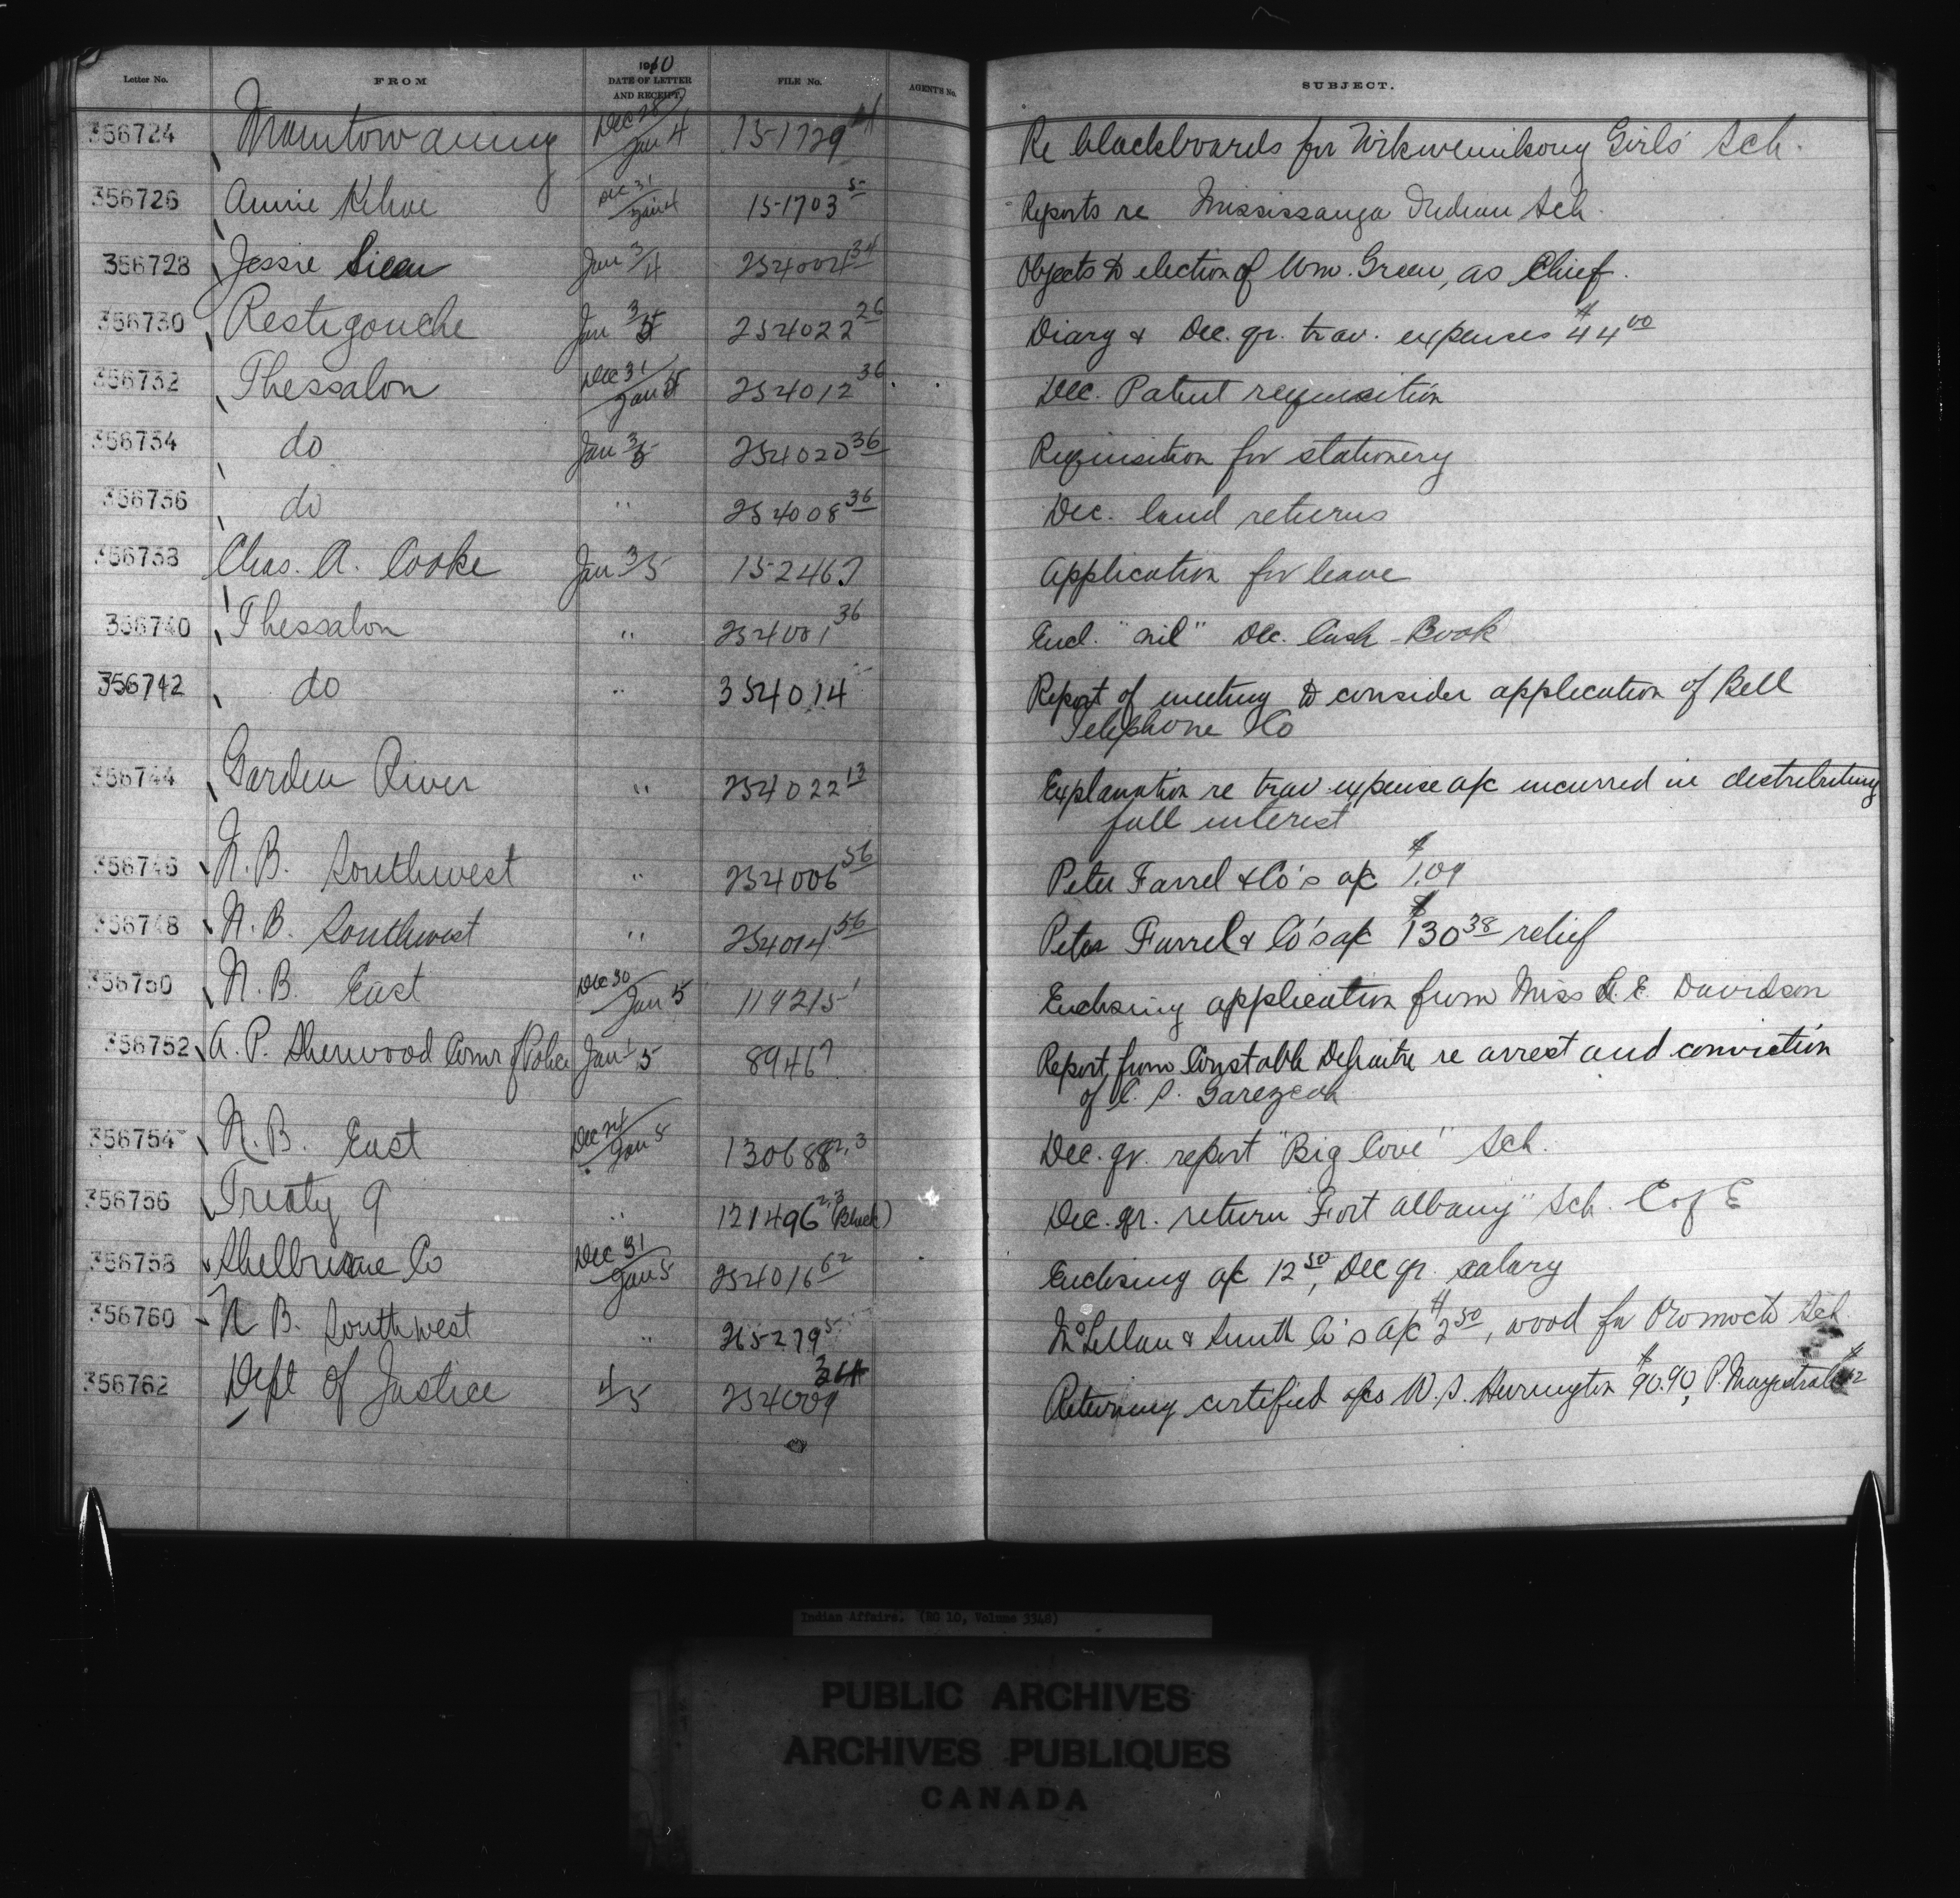 Letter No. FROM 1910 DATE OF LETTER AND RECEIPT. FILE No. AGENT'S No. SUBJECT.
356724 Manitowaning Dec 28/Jan 4 151729 Re blackboards for Wikwemikong Girls' Sch.
356726 Annie Dec 31/Jan 4 151703 5 Reports re Mississauga Indian Sch.
356728 Jessie Jan 3/4 254004 34 Objects to election of Wm. Green, as Chief.
356730 Restigouche Jan 3/5 254022 26 Diary & Dec. qr. trav. expenses $44 00
356732 Thessalon Dec 31/Jan 5 254012 36 Dec. Patent requisition
356734 do Jan 3/5 254020 36 Requisition for stationery
356736 do " 254008 36 Dec. land returns
356738 Chas. A. Cooke Jan 3/5 152467 Application for leave
356740 Thessalon " 254001 36 Encl. "nil" Dec. Cash-Book
356742 do " 354014 Report of meeting to consider application of Bell
Telephone Co
356744 Garden River " 254022 13 Explanation re trav expense a/c incurred in distributing
fall interest
356746 N.B. Southwest " 254006 56 Peter Farrel & Co's a/c $1.09
356748 N.B. Southwest " 254014 56 Peter Farrel & Co's a/c $130 38 relief
356750 N.B. East Dec 30/Jan 5 119215 1 Enclosing application from Miss E. Davidson
356752 A. P. Sherwood Comr of Police Jan 5 89467 Report from Constable re arrest and conviction
of
356754 N.B. East Dec 24/Jan 5 130688 2,3 Dec. qr. report "Big Cove" Sch.
356756 Treaty 9 " 121496 2,3 (Black) Dec. qr. return "Fort Albany" Sch. C of E
356758 Shelburne Co Dec 31/Jan 5 254016 62 Enclosing a/c 12 50, Dec qr. salary
356760 N B. Southwest " 265279 5 McLellan & Smith Co's a/c $2 50, wood for Oromocto Sch.
356762 Dept of Justice 4/5 254009 Returning certified a/cs W. S. Herrington $90.90, P. Magistrate
Indian Affairs. (RG 10, Volume 3348)
PUBLIC ARCHIVES
ARCHIVES PUBLIQUES
CANADA